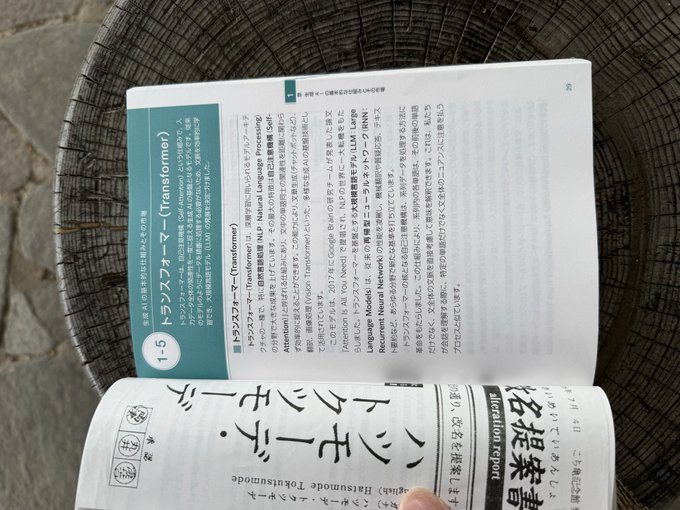 生成 AI の基本的な仕組みとその市場
1-5
トランスフォーマー(Transformer)
トランスフォーマーは、自己注意機構 (Self-Attention) という仕組みで、入
力データ全体の関連性を一度に捉える生成AIの基盤となるモデルです。従来
のモデルのようにデータを順番に処理する必要がないため、文脈を効率的に学
習でき、大規模言語モデル (LLM) の発展を決定づけました。
■トランスフォーマー(Transformer)
トランスフォーマー(Transformer)は、深層学習に用いられるモデルアーキテ
クチャの一種で、特に自然言語処理(NLP : Natural Language Processing)
の分野で大きな成果を上げています。その最大の特徴は自己注意機構 (Self-
Attention) と呼ばれる仕組みにあり、文中の単語同士の関連性を距離に関わら
ず効率的に捉えることができます。この能力により、文章生成(チャットボットなど)、
翻訳、画像処理(Vision Transformer)といった、多様な生成AIの基盤技術とし
て活用されています。
このモデルは、2017年にGoogle Brainの研究チームが発表した論文
「Attention Is All You Need」で提唱され、NLPの世界に一大転機をもた
らしました。トランスフォーマーを基盤とする大規模言語モデル(LLM : Large
Language Models) は、従来の再帰型ニューラルネットワーク(RNN :
Recurrent Neural Network) の性能を凌駕し、機械翻訳や質疑応答、テキス
ト要約など、あらゆる分野で新たな基準を打ち立てています。
トランスフォーマーの核となる自己注意機構は、系列データを処理する方法に
革命をもたらしました。この仕組みにより、系列内の各単語は、その前後の単語
だけでなく、文全体の文脈を直接考慮して意味を解釈できます。これは、私たち
が会話を理解する際に、特定の単語だけでなく文全体のニュアンスに注意を払う
プロセスと似ています。
1
章 生成AIの基本的な仕組みとその市場
29
年 7月 4日
改名提案書
alteration report
の通り、改名を提案します
ハツモーデ・
トクツモーデ
Hatsumode Tokutsumode